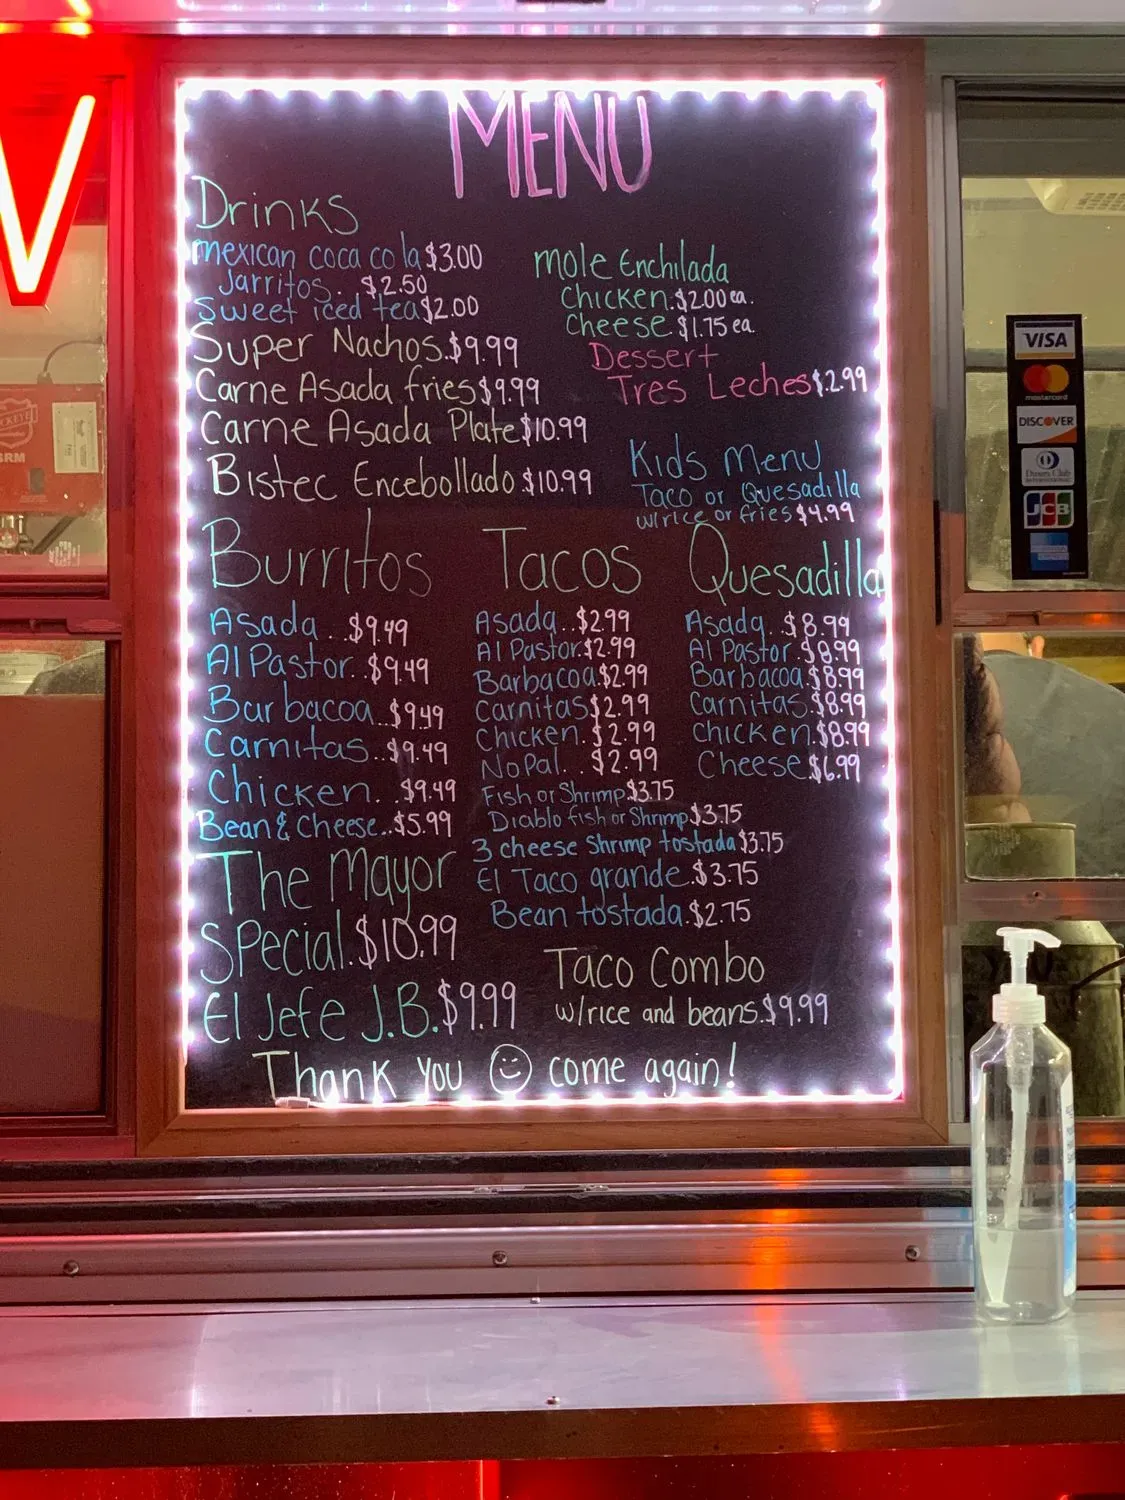 MENU
Drinks
mexican coca cola $3.00
Jarritos.. $2.50
Sweet iced tea $2.00
Super Nachos.$9.99
Carne Asada fries $9.99
Carne Asada Plate $10.99
Bistec Encebollado.$10.99
mole Enchilada
Chicken.$2.00 ea.
Cheese.$1.75 ea.
Dessert
Tres Leches $2.99
Kids Menu
Taco or Quesadilla
w/rice or fries $4.99
Burritos
Asada..$9.49
Al Pastor..$9.49
Barbacoa..$9.49
Carnitas..$9.49
Chicken..$9.49
Bean & Cheese..$5.99
The Mayor
Special.$10.99
El Jefe J.B.$9.99
Tacos
Asada..$2.99
Al Pastor.$2.99
Barbacoa.$2.99
Carnitas $2.99
Chicken.$2.99
Nopal..$2.99
Fish or Shrimp.$3.75
Diablo fish or Shrimp $3.75
3 cheese Shrimp tostada $3.75
El Taco grande.$3.75
Bean tostada.$2.75
Quesadilla
Asada..$8.99
Al Pastor.$8.99
Barbacoa.$8.99
Carnitas.$8.99
Chicken.$8.99
Cheese.$6.99
Taco Combo
w/rice and beans.$9.99
Thank you come again!
VISA
mastercard
DISCOVER
Diners Club
INTERNATIONAL
JCB